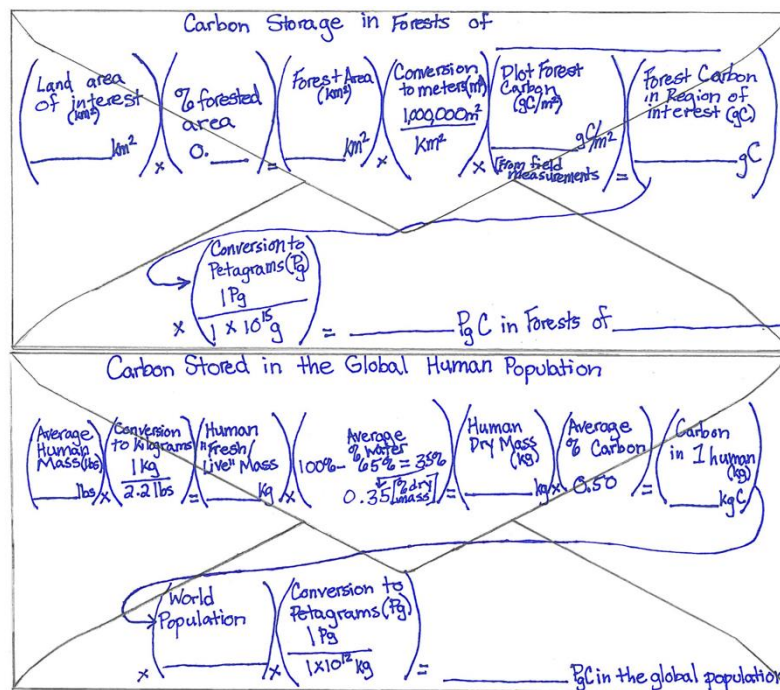 Carbon Storage in Forests of
Land area of interest (km²) ______ km²
×
% forested area 0.____
=
Forest Area (km²) ______ km²
×
Conversion to meters (m²) 1,000,000 m² / km²
×
Plot Forest Carbon (gC/m²) ______ gC/m² [From field measurements
=
Forest Carbon in Region of interest (gC) ______ gC
×
Conversion to Petagrams (Pg) 1 Pg / 1 × 10¹⁵ g
= ______ Pg C in Forests of ______
Carbon Stored in the Global Human Population
Average Human Mass (lbs) ____ lbs
×
Conversion to Kilograms 1 kg / 2.2 lbs
=
Human "Fresh/Live" Mass ____ kg
×
Average % water 100% - 65% = 35% 0.35 [% dry mass]
=
Human Dry Mass (kg) ____ kg
×
Average % Carbon 0.50
=
Carbon in 1 human (kg) ____ kgC
×
World Population ______
×
Conversion to Petagrams (Pg) 1 Pg / 1×10¹² kg
= ______ PgC in the global population